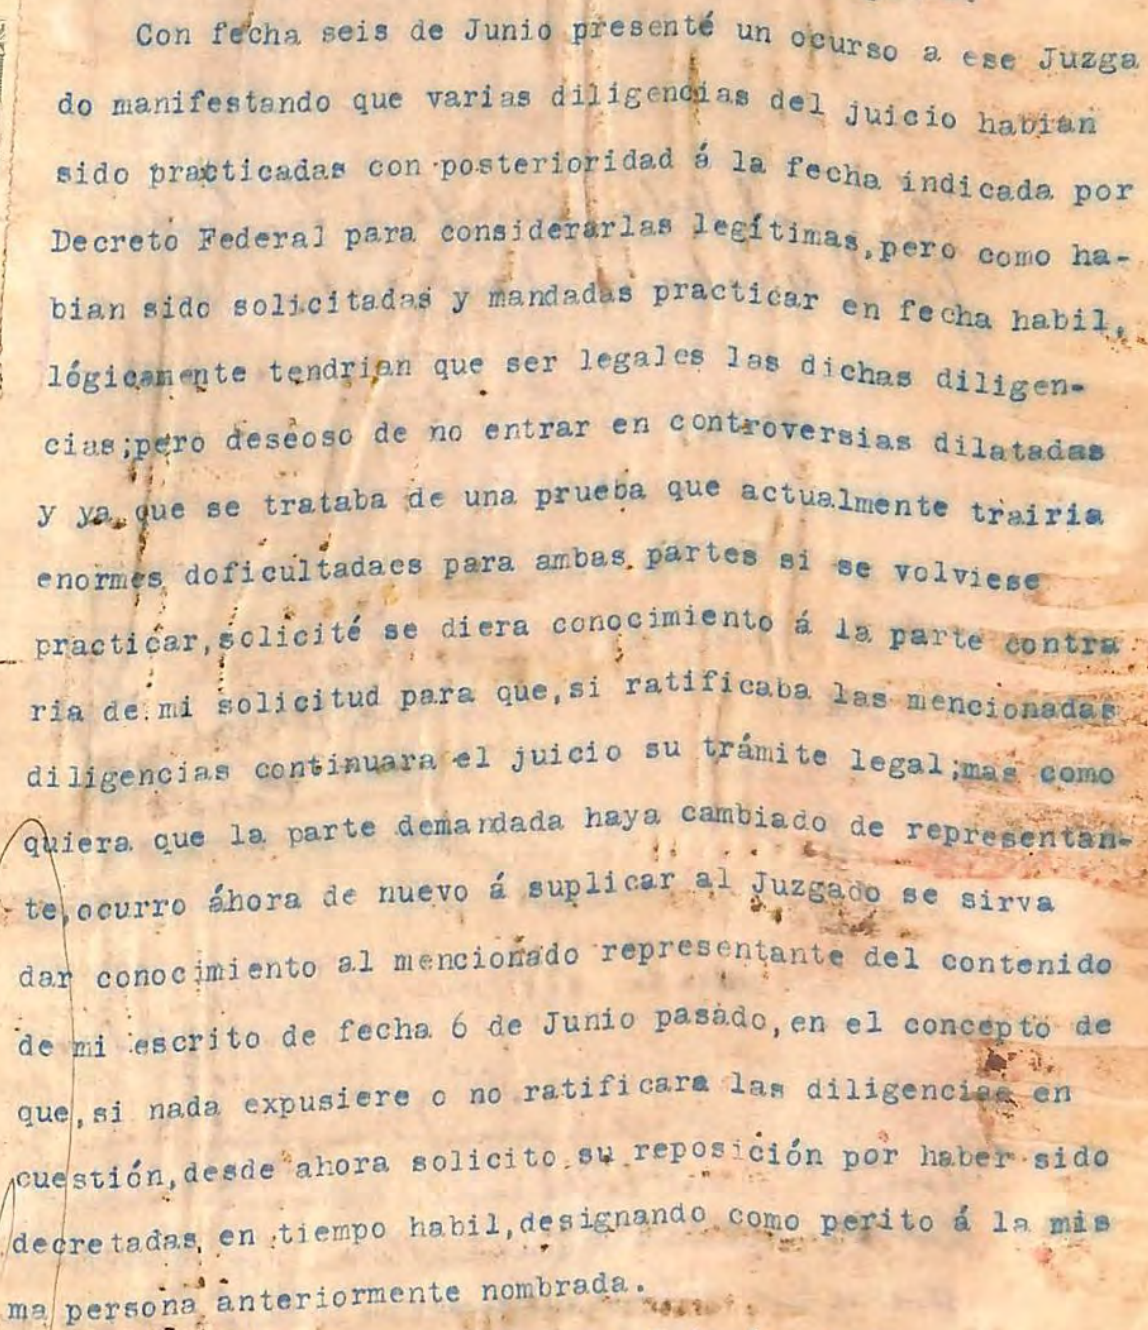 Con fecha seis de Junio presenté un ocurso a ese Juzga
do manifestando que varias diligencias del juicio habian
sido practicadas con posterioridad á la fecha indicada por
Decreto Federal para considerarlas legítimas,pero como ha-
bian sido solicitadas y mandadas practicar en fecha habil,
lógicamente tendrian que ser legales las dichas diligen-
cias;pero deseoso de no entrar en controversias dilatadas
y ya que se trataba de una prueba que actualmente trairia
enormes doficultadaes para ambas partes si se volviese
practicar,solicité se diera conocimiento á la parte contra
ria de mi solicitud para que,si ratificaba las mencionadas
diligencias continuara el juicio su trámite legal;mas como
quiera que la parte demandada haya cambiado de representan-
te,ocurro áhora de nuevo á suplicar al Juzgado se sirva
dar conocimiento al mencionado representante del contenido
de mi escrito de fecha 6 de Junio pasado,en el concepto de
que,si nada expusiere o no ratificara las diligencias en
cuestión,desde ahora solicito su reposición por haber sido
decretadas en tiempo habil,designando como perito á la mis
ma persona anteriormente nombrada.